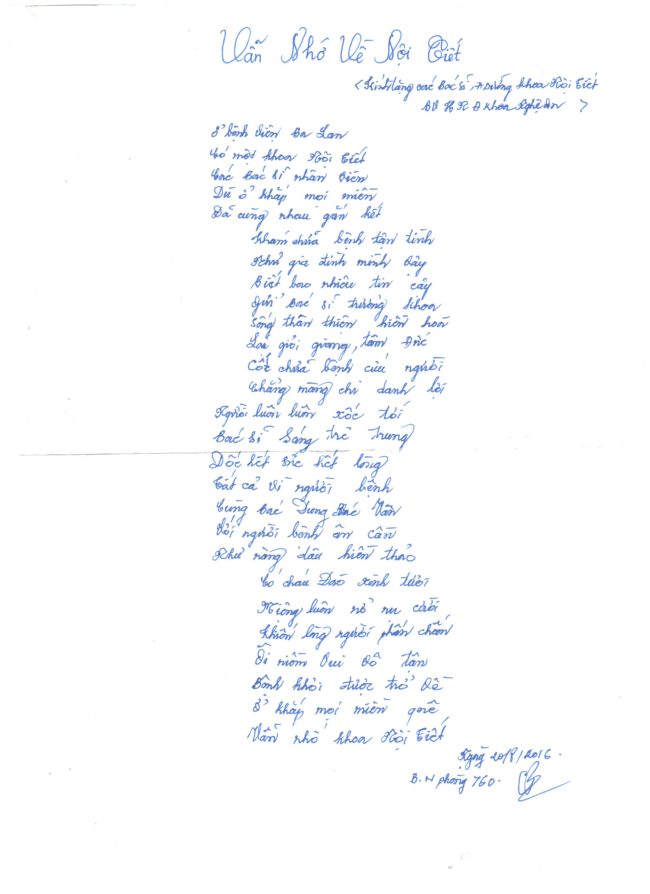 Vẫn Nhớ Về Nội Tiết
< Kính tặng các bác sĩ, Đ dưỡng khoa Nội Tiết
BV HN Đ khoa Nghệ An >
Ở bệnh viện Ba Lan
Có một khoa Nội Tiết
Các bác sĩ nhân viên
Dù ở khắp mọi miền
Đã cùng nhau gắn kết
Khám chữa bệnh tận tình
Như gia đình mình vậy
Biết bao nhiêu tin cậy
Gửi bác sĩ trưởng khoa
Sống thân thiện hiền hoà
Lại giỏi giang, tâm đức
Cốt chữa bệnh cứu người
Chẳng màng chi danh lợi
Người luôn luôn xốc tới
Bác sĩ Sáng trẻ trung
Dốc hết sức hết lòng
Tất cả vì người bệnh
Cùng các Dung Vân
Với người bệnh ân cần
Như nàng dâu hiền thảo
Có cháu Đào xinh tươi
Miệng luôn nở nụ cười
Khiến lòng người phấn chấn
Ôi niềm vui vô tận
Bệnh khỏi được trở về
Ở khắp mọi miền quê
Vẫn nhớ khoa Nội Tiết
Ngày 20/8/2016.
B.N phòng 760.